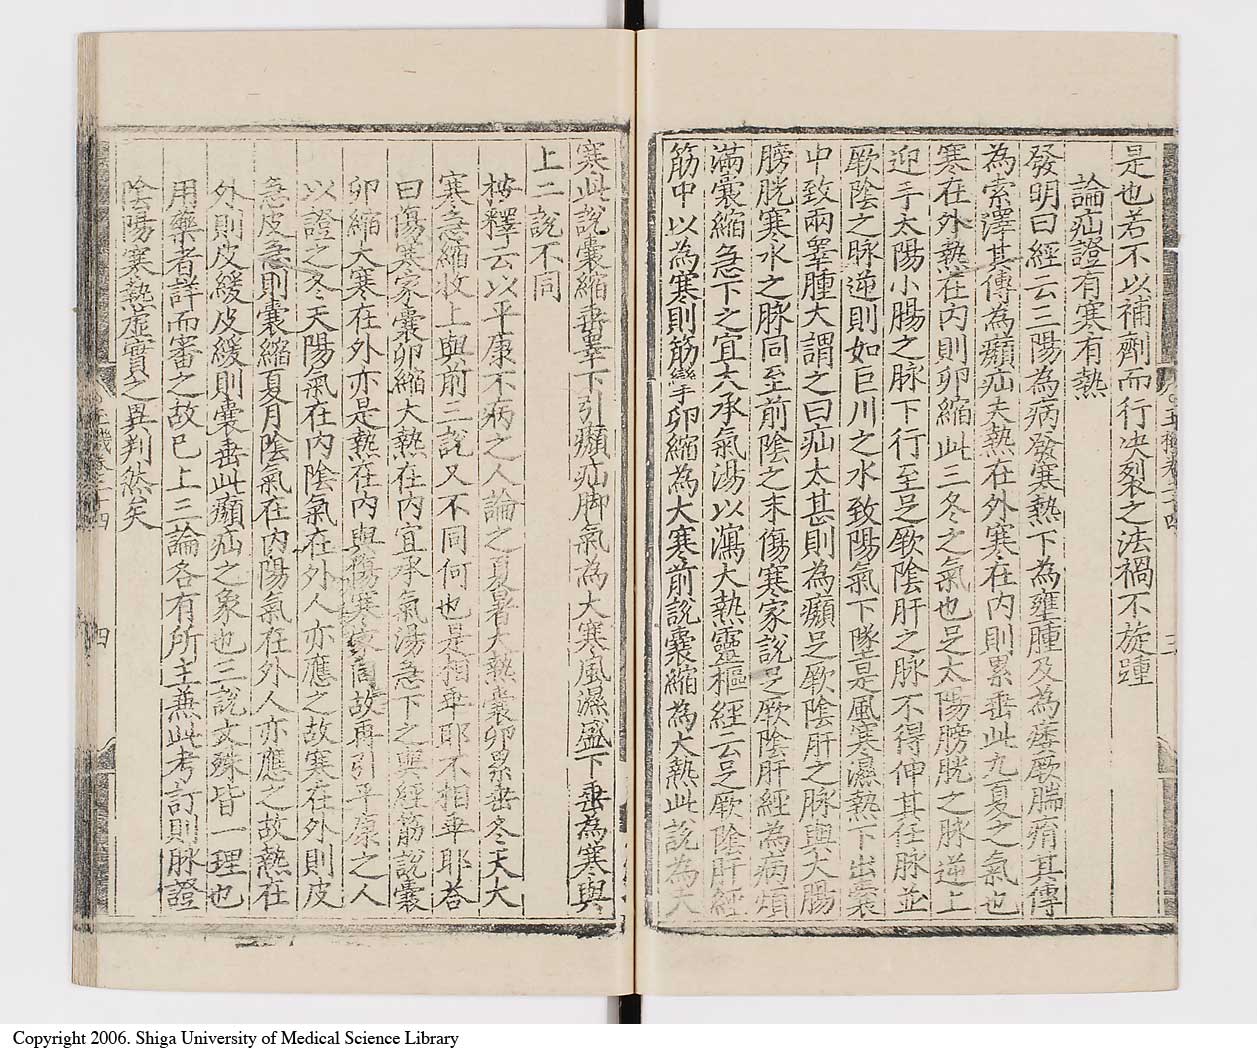 是也若不以補劑而行決裂之法禍不旋踵
論疝證有寒有熱
發明曰經云三陽為病發寒熱下為壅腫及為痿厥腨㾓其傳
為索澤其傳為㿗疝夫熱在外寒在內則累垂此九夏之氣也
寒在外熱在內則卵縮此三冬之氣也足太陽膀胱之脉逆上
迎手太陽小腸之脉下行至足厥陰肝之脉不得伸其任脉並
厥陰之脉逆則如巨川之水致陽氣下墜是風寒濕熱下出囊
中致兩睪腫大謂之曰疝太甚則為㿗足厥陰肝之脉與大腸
膀胱寒水之脉同至前陰之末傷寒家說足厥陰肝經為病煩
滿囊縮急下之宜大承氣湯以瀉大熱靈樞經云足厥陰肝經
筋中以為寒則筋攣卵縮為大寒前說囊縮為大熱此說為大
寒此說囊縮垂睪下引㿗疝脚氣為大寒風濕盛下垂為寒與
上二說不同
楷釋云以平康不病之人論之夏暑大熱囊卵累垂冬天大
寒急縮收上與前三說又不同何也是相乖耶不相乖耶荅
曰傷寒家囊卵縮大熱在內宜承氣湯急下之與經筋說囊
卵縮大寒在外亦是熱在內與傷寒家同故再引平康之人
以證之冬天陽氣在內陰氣在外人亦應之故寒在外則皮
急皮急則囊縮夏月陰氣在內陽氣在外人亦應之故熱在
外則皮緩皮緩則囊垂此㿗疝之象也三說文殊皆一理也
用藥者詳而審之故已上三論各有所主兼此考訂則脉證
陰陽寒熱虛實之異判然矣
四
Copyright 2006. Shiga University of Medical Science Library